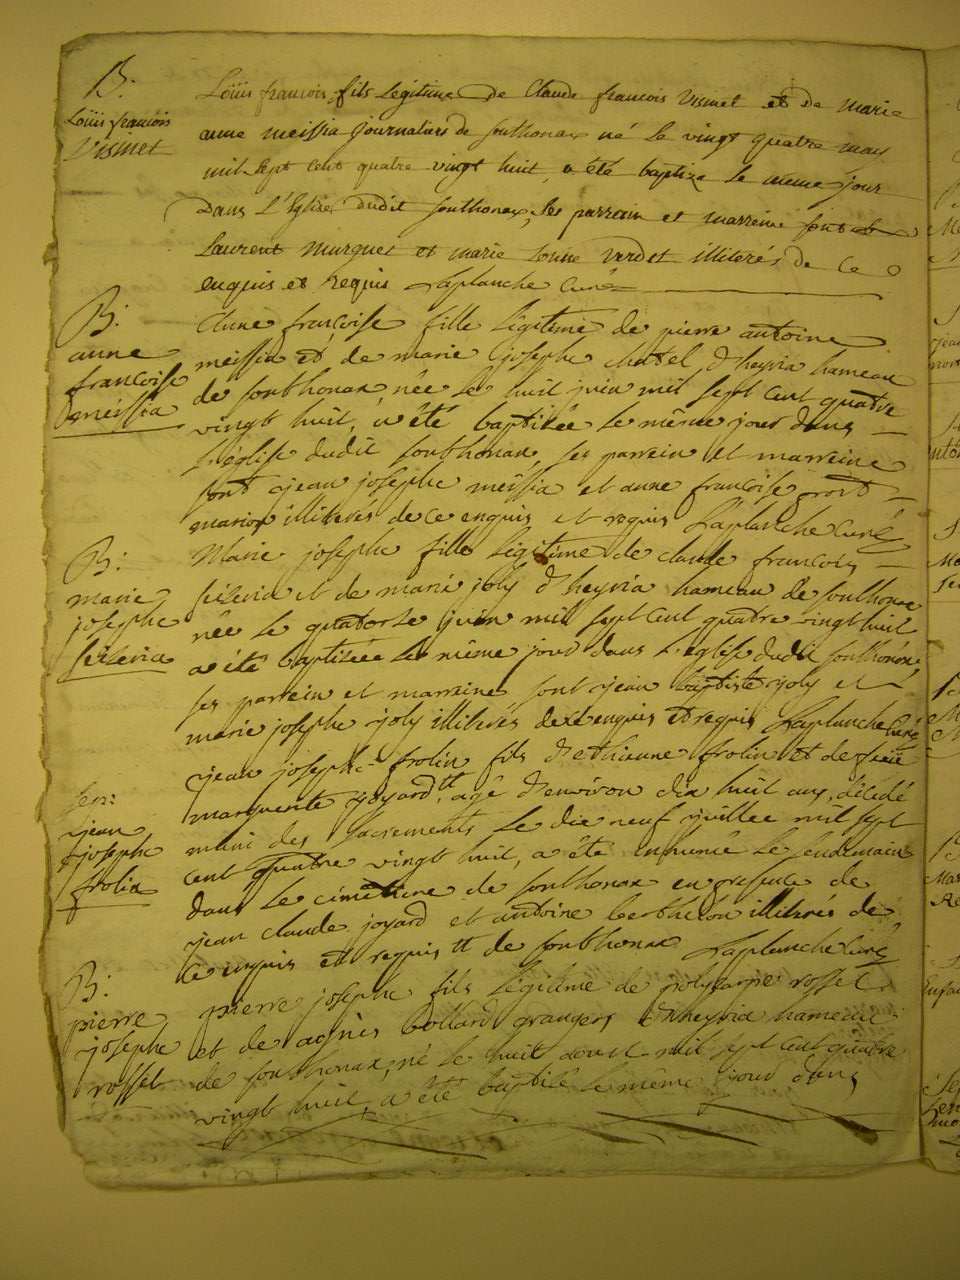 B:
Loüis francois
Visinet
Loüis francois fils Légitime de Claude francois Visinet et de marie
anne meissia journaliers de sonthonax né le vingt quatre may
mil sept cent quatre vingt huit, a été baptizé le meme jour
Dans L'Eglise dudit sonthonax, ses parrain et marreine sont
Laurent murquet et marie verdet illiterés de ce
enquis et Requis Laplanche Curé
B:
anne
francoise
meissia
Anne francoise fille légitime de pierre antoine
meissia et de marie josephe chatel d'heyria hameau
de sonthonax, née le huit juin mil sept cent quatre
vingt huit, a été baptisée le même jour dans
l'église dudit sonthonax, ses parrein et marreine
sont jean josephe meissia et anne francoise
illiterés de ce enquis et requis Laplanche Curé
B:
marie
josephe
Marie josephe fille légitime de claude francois
et de marie joly d'heyria hameau de sonthonax
née le quatorze juin mil sept cent quatre vingt huit
a été baptisée le même jour dans l'église dudit sonthonax,
ses parrein et marreine sont jean baptiste joly et
marie josephe joly illiterés de ce enquis et requis Laplanche Curé
Sep:
jean
josephe
frolin
jean josephe frolin fils d'ethienne frolin et de feüe
marguerite joyard, agé d'environ dix huit ans, décédé
muni des sacrements le dix neuf juillet mil sept
cent quatre vingt huit, a été inhumé le lendemain
dans le cimetiere de sonthonax en presence de
jean claude joyard et antoine berthelon illiterés de
ce enquis et requis de sonthonax Laplanche Curé
B:
pierre
josephe
rosset
pierre josephe fils légitime de polycarpe rosset
et de agnès bollard grangers d'heyria hameau
de sonthonax, né le huit aoust mil sept cent quatre
vingt huit, a été baptisé le même jour dans